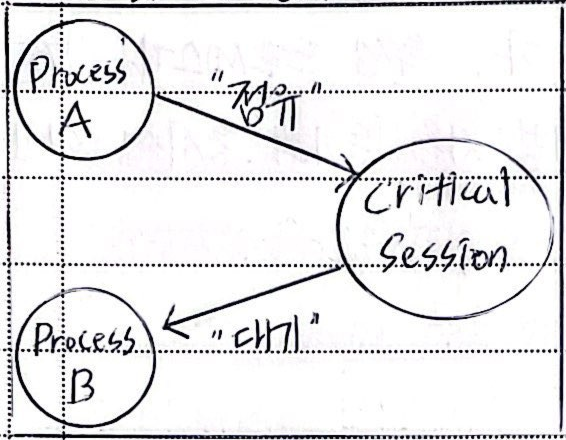 Process
A
"점유"
Critical
Session
Process
B
"대기"